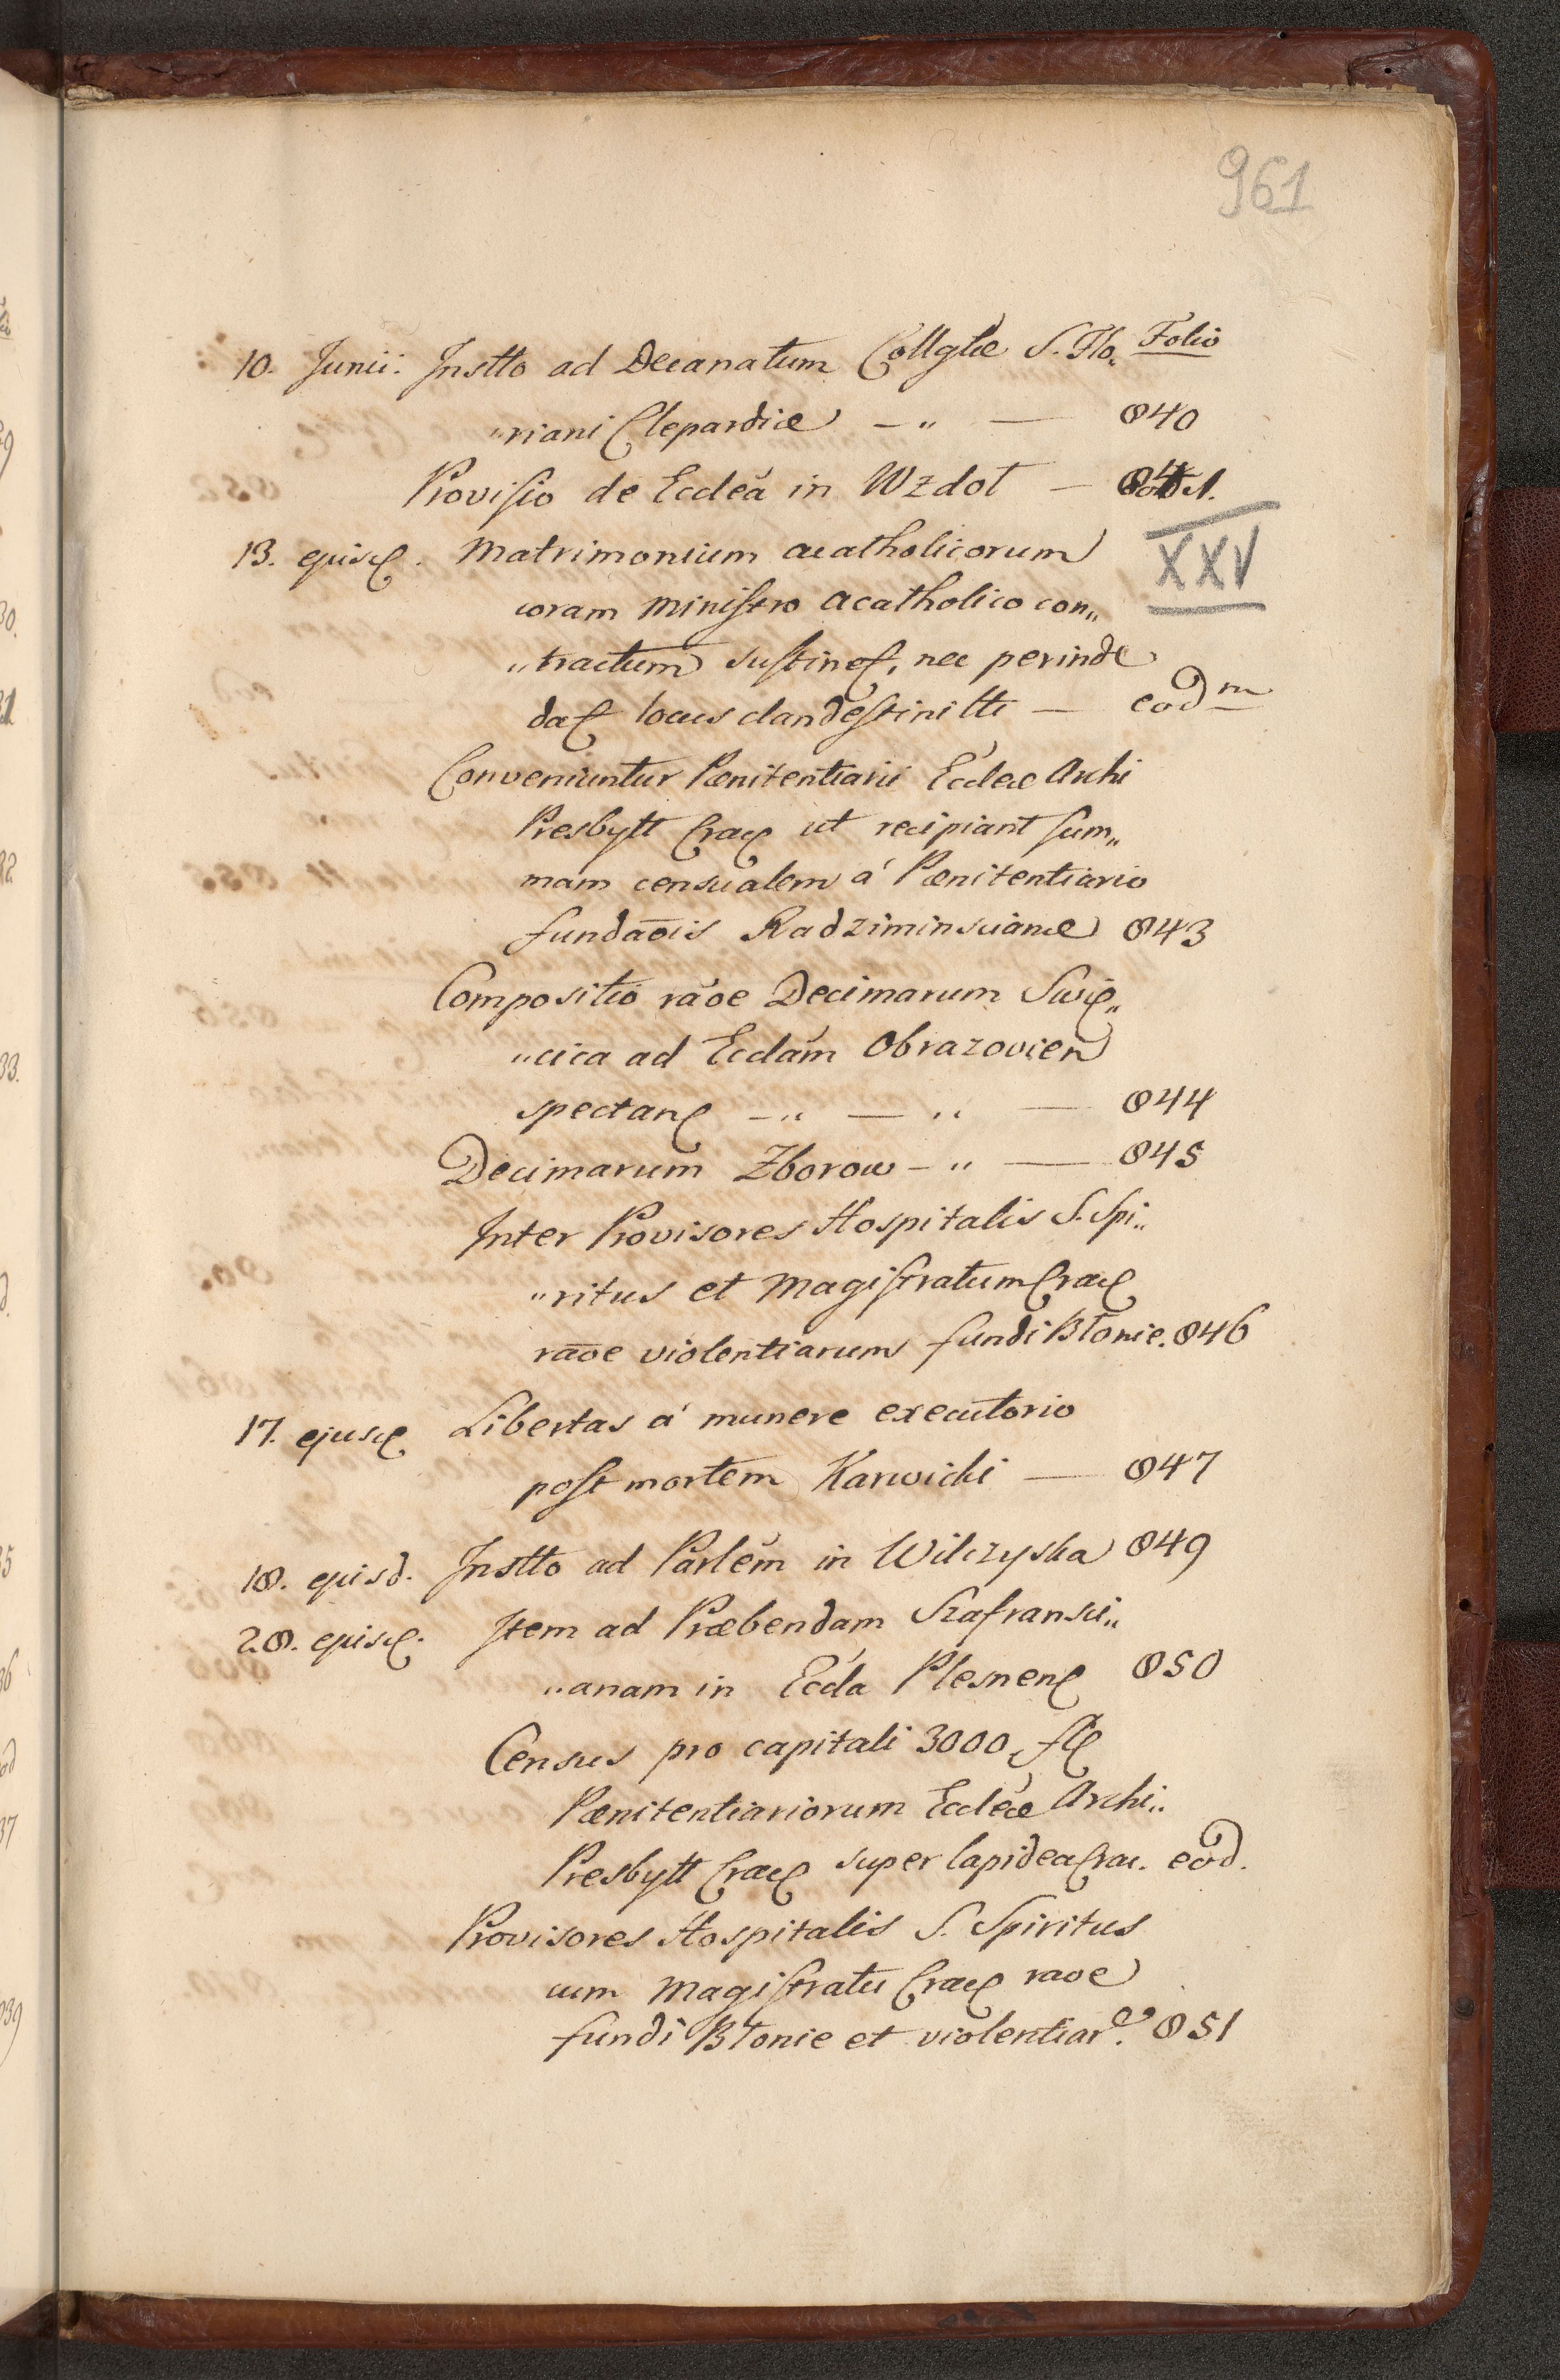 961
Folio
10. Junii. Instto ad Decanatum Collgtæ S. Flo„
„riani Clepardiæ – „ — 840
Provisio de Ecclea in Wzdot — 841.
XXV
13. ejusd. Matrimonium acatholicorum
coram Ministro acatholico con„
„tractum sustinet, nec perinde
dat locus clandestinitti — eodm
Conveniuntur Pænitentiarii Eccleæ Archi
Presbytt Crac ut recipiant sum„
mam censualem á Pænitentiario
fundaois Radziminscianæ 843
Compositio raoe Decimarum
„cica ad Eccläm Obrazovien
spectan – „ — „ — 844
Decimarum Zborow – „ — 845
Inter Provisores Hospitalis S. Spi„
„ritus et Magistratum Crac
raoe violentiarum fundi Błonie. 846
17. ejusd Libertas á munere executorio
post mortem Karwicki — 847
18. ejusd. Instto ad Parlem in Wilczyska 849
28. ejusd. Item ad Præbendam Szafransci„
„anam in Eccla Plesnen 850
Census pro capitali 3000 fl
Pænitentiariorum Eccleæ Archi„
Presbytt Crac super lapidea Crac. eod.
Provisores Hospitalis S. Spiritus
cum Magistratu Crac raoe
fundi Błonie et violentiar. 851